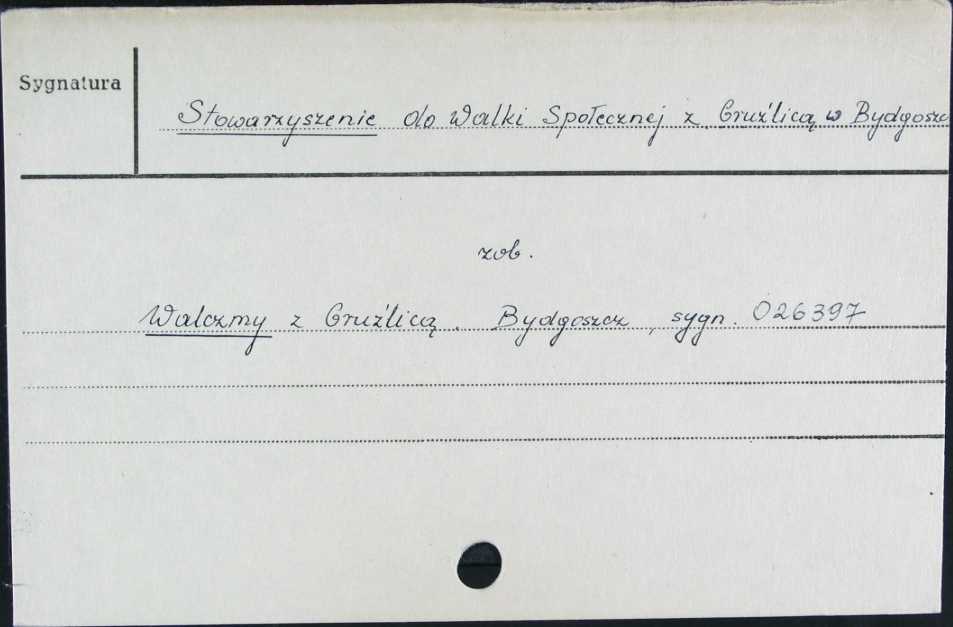 Sygnatura
Stowarzyszenie do Walki Społecznej z Gruźlicą w Bydgoszc
zob.
Walczmy z Gruźlicą. Bydgoszcz, sygn. 026397